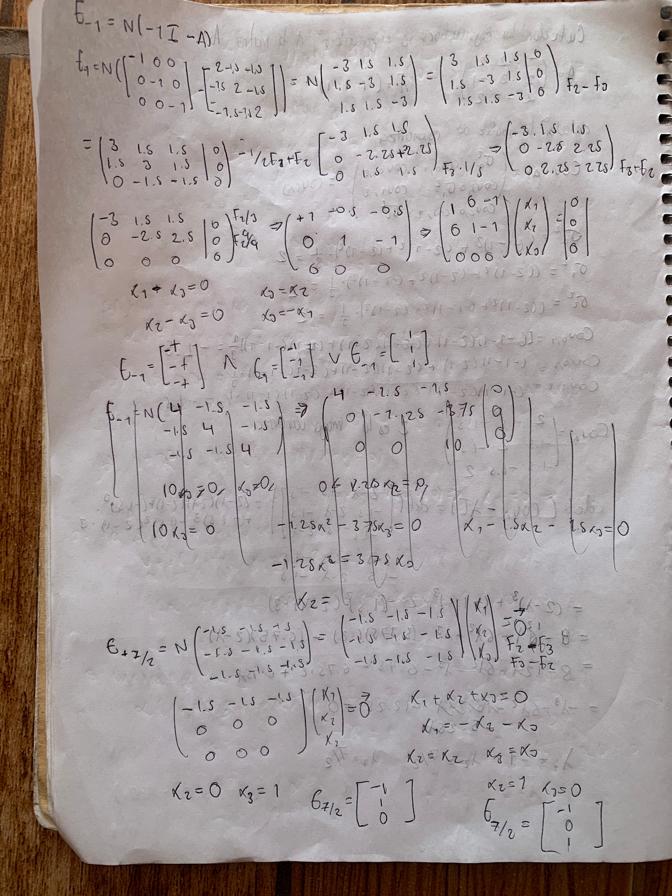 E_-1 = N(-1 I - A)
E_1 = N([-1 0 0; 0 -1 0; 0 0 -1] - [2 -1.5 -1.5; -1.5 2 -1.5; -1.5 -1.5 2]) = N(-3 1.5 1.5; 1.5 -3 1.5; 1.5 1.5 -3) = (3 1.5 1.5 | 0; 1.5 -3 1.5 | 0; 1.5 1.5 -3 | 0) F_2 - F_3
= (3 1.5 1.5 | 0; 1.5 3 1.5 | 0; 0 -1.5 -1.5 | 0) -1/2 F_3 + F_2 [-3 1.5 1.5; 0 -2.25 +2.25; 0 1.5 1.5] F_3 · 1/5 ⇒ (-3 1.5 1.5; 0 -2.5 2.25; 0 2.25 -2.25) F_3 + F_2
(-3 1.5 1.5 | 0; 0 -2.5 2.5 | 0; 0 0 0 | 0) F_1/3 ⇒ (+1 -0.5 -0.5; 0 1 -1; 0 0 0) ⇒ (1 0 -1; 0 1 -1; 0 0 0) (x_1; x_2; x_3) = [0; 0; 0]
x_1 + x_3 = 0 x_3 = x_2
x_2 - x_3 = 0 x_3 = -x_1
E_-1 = [-t; -t; -t] ∧ E_1 = [-1; -1; -1] ∨ E_-1 = [1; 1; 1]
E_-1 = N(4 -1.5 -1.5; -1.5 4 -1.5; -1.5 -1.5 4) ⇒ (4 -1.5 -1.5 | 0; 0 -1.25 -3.75 | 0; 0 0 10 | 0)
10x_3 = 0, x_3 = 0,
10x_3 = 0 -1.25x^2 - 3.75x_3 = 0 x_1 - 1.5x_2 - 1.5x_3 = 0
-1.25x^2 = 3.75x_3
x_2 =
E_+7/2 = N(-1.5 -1.5 -1.5; -1.5 -1.5 -1.5; -1.5 -1.5 -1.5) = (-1.5 -1.5 -1.5; -1.5 -1.5 -1.5; -1.5 -1.5 -1.5) (x_1; x_2; x_3) = 0 F_2 - F_3 F_3 - F_2
(-1.5 -1.5 -1.5; 0 0 0; 0 0 0) (x_1; x_2; x_3) = 0 x_1 + x_2 + x_3 = 0
x_1 = -x_2 - x_3
x_2 = x_2 x_3 = x_3
x_2 = 0 x_3 = 1 E_7/2 = [-1; 1; 0] x_2 = 1 x_3 = 0
E_7/2 = [-1; 0; 1]